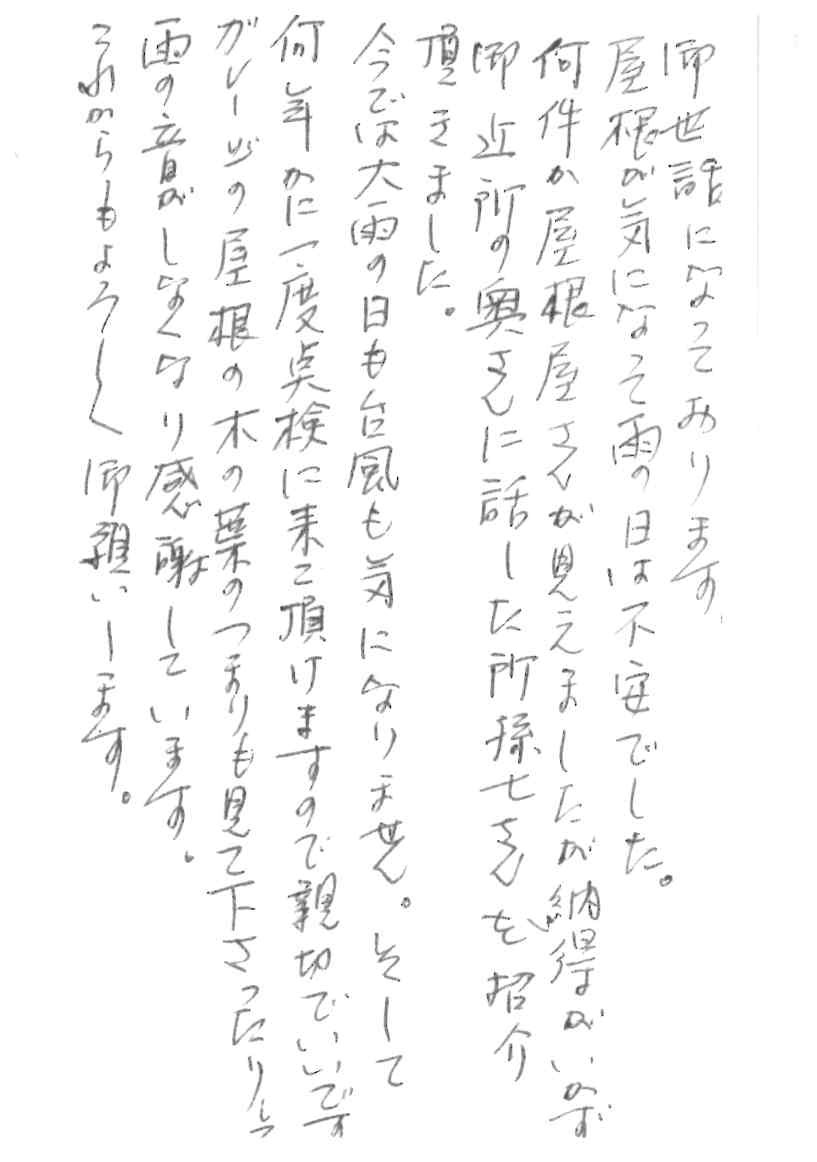 御世話になっております
屋根が気になって雨の日は不安でした。
何件か屋根屋さんが見えましたが納得がいかず
御近所の奥さんに話した所孫七さんを紹介
頂きました。
今では大雨の日も台風も気になりません。そして
何年かに一度点検に来て頂けますので親切でいいです
ガレージの屋根の木の葉のつまりも見て下さったりと
雨の音がしなくなり感謝しています。
これからもよろしく御願いします。